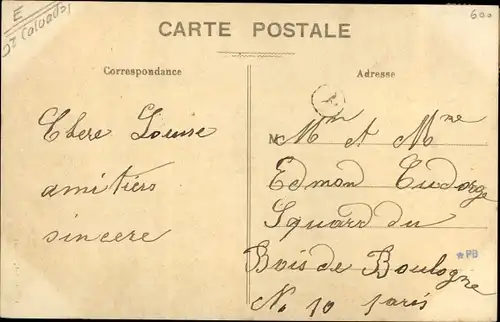 E
02 (Calvados)
600
CARTE POSTALE
Correspondance
Adresse
Chere Louise
amitiers
sincere
M
Mr et Mme
Edmond
Squard du
Bois de Boulogne
No 10 Paris
*PB